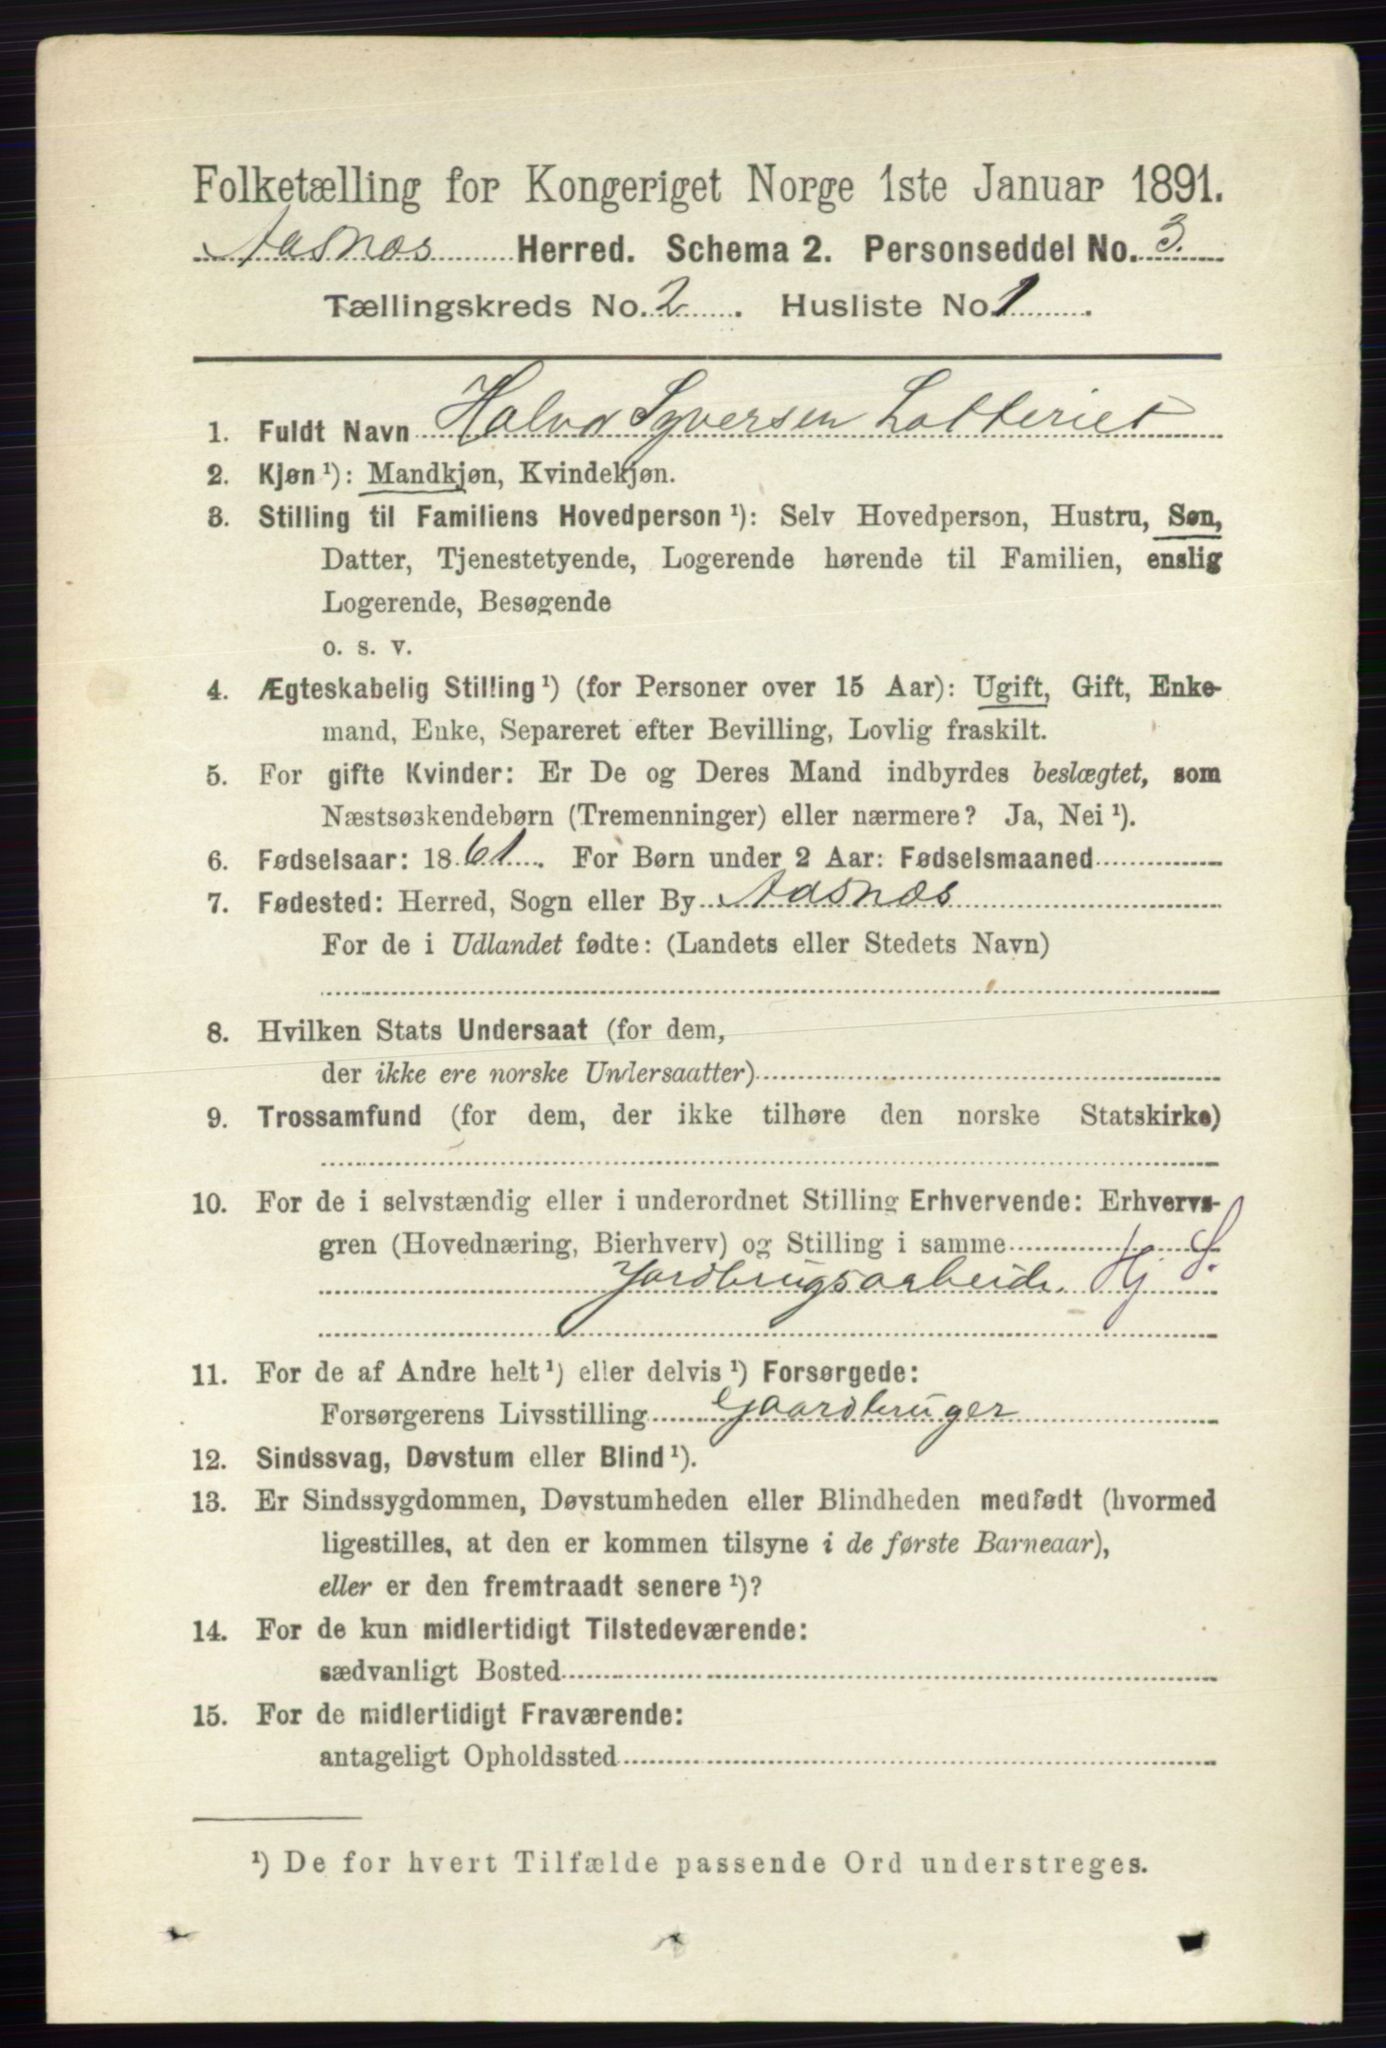 Folketælling for Kongeriget Norge 1ste Januar 1891.
Aasnæs Herred. Schema 2. Personseddel No. 3.
Tællingskreds No. 2. Husliste No. 1.
1. Fuldt Navn Halvor Syversen Lotteriet
2. Kjøn ¹): Mandkjøn, Kvindekjøn.
3. Stilling til Familiens Hovedperson ¹): Selv Hovedperson, Hustru, Søn,
Datter, Tjenestetyende, Logerende hørende til Familien, enslig
Logerende, Besøgende
o. s. v.
4. Ægteskabelig Stilling ¹) (for Personer over 15 Aar): Ugift, Gift, Enke-
mand, Enke, Separeret efter Bevilling, Lovlig fraskilt.
5. For gifte Kvinder: Er De og Deres Mand indbyrdes beslægtet, som
Næstsøskendebørn (Tremenninger) eller nærmere? Ja, Nei ¹).
6. Fødselsaar: 1861. For Børn under 2 Aar: Fødselsmaaned
7. Fødested: Herred, Sogn eller By Aasnæs
For de i Udlandet fødte: (Landets eller Stedets Navn)
8. Hvilken Stats Undersaat (for dem,
der ikke ere norske Undersaatter)
9. Trossamfund (for dem, der ikke tilhøre den norske Statskirke)
10. For de i selvstændig eller i underordnet Stilling Erhvervende: Erhvervs-
gren (Hovednæring, Bierhverv) og Stilling i samme
Jordbrugsarbeide. Hj. S.
11. For de af Andre helt ¹) eller delvis ¹) Forsørgede:
Forsørgerens Livsstilling Gaardbruger
12. Sindssvag, Døvstum eller Blind ¹).
13. Er Sindssygdommen, Døvstumheden eller Blindheden medfødt (hvormed
ligestilles, at den er kommen tilsyne i de første Barneaar),
eller er den fremtraadt senere ¹)?
14. For de kun midlertidigt Tilstedeværende:
sædvanligt Bosted
15. For de midlertidigt Fraværende:
antageligt Opholdssted
¹) De for hvert Tilfælde passende Ord understreges.